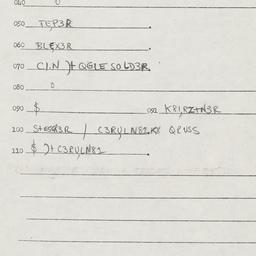 040 0
050 TEP3R
060 BLEX3R
070 C1.N )+ QGLE SO LD3R
080 0
090 $ 091 KRI,RZ+N3R
100 / C3RYLN82 QRUSS
110 $ )+ C3RYLN82